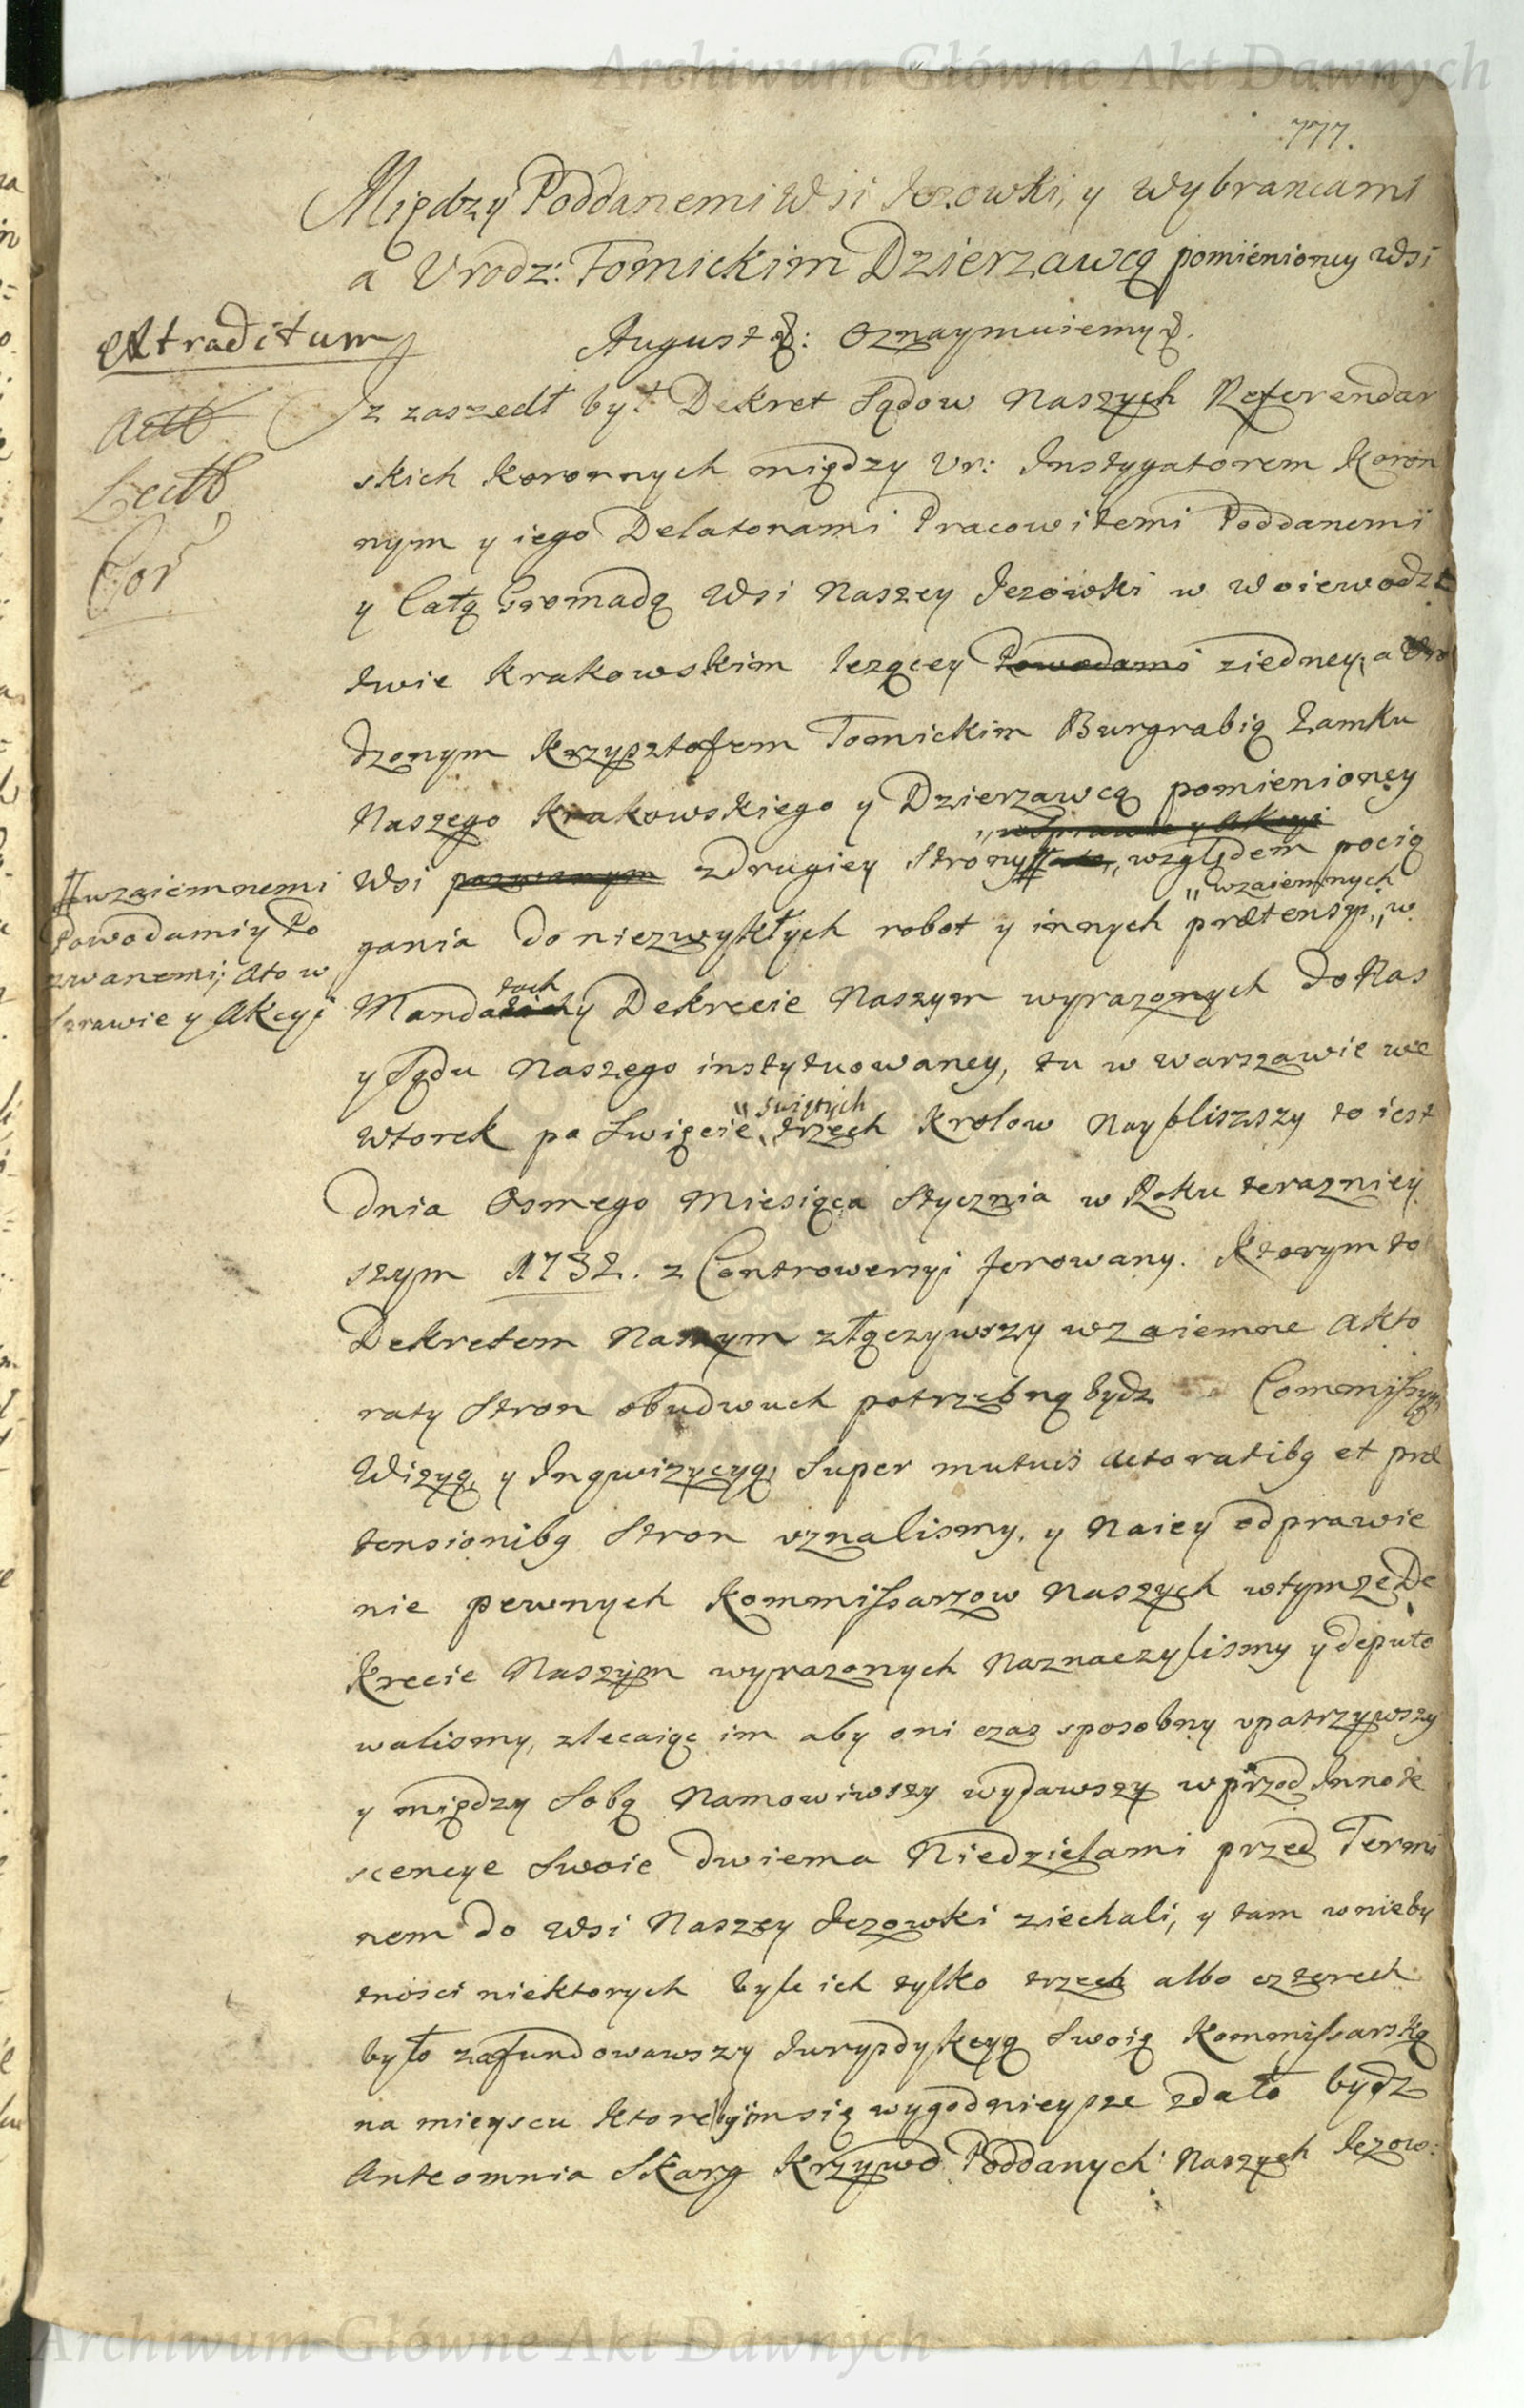 Archiwum Główne Akt Dawnych
777.
Między Poddanemi Wsi Jezowki, y wybrancami
a Urodz: Tomickim Dzierzawcą pomienioney Wsi
August &: Oznaymuiemy &.
extraditum
Actt
Lectt
Cor
Iz zaszedł był Dekret Sądow Naszych Referendar
skich Koronnych między Ur: Instygatorem Koron
nym y iego Delatorami Pracowitemi Poddanemi
y Całą Gromadą Wsi Naszey Jezowki w Woiewodz
twie Krakowskim lezącey Powodami ziedney, a Uro
dzonym Krzysztofem Tomickim Burgrabią Zamku
Naszego Krakowskiego y Dzierzawcą pomienioney
w Sprawie y Akcyi
Wsi pozwanym zdrugiey Strony # ato, względem pocią
# wzaiemnemi
Powodamiy Po
zwanemi; Ato w
Sprawie y Akcyi
wzaiemnych
gania do niezwykłych robot y innych prætensyi, w
tach
Mandatach y Dekrecie Naszym wyrazonych do Nas
y Sądu Naszego instytuowaney, tu w Warszawie we
swiętych
Wtorek po Swięcie trzech Krolow Naybliszszy to iest
dnia Osmego Miesiąca Stycznia w Roku terazniey
szym 1732. z Controwersyi ferowany. Ktorym to
Dekretem Naszym złączywszy wzaiemne Akto
raty Stron obudwuch potrzebną bydz Commissyą
Wizyą, y Inqwizycyą, Super mutuis actoratibq et præ
tensionibq Stron uznalismy, y Naiey odprawie
nie pewnych Kommissarzow Naszych wtymze De
krecie Naszym wyrazonych Naznaczylismy y deputo
walismy, zlecaiąc im aby oni czas sposobny upatrzywszy
y między Sobą Namowiwszy wydawszy wprzod Innote
scencye Swoie dwiema Niedzielami przed Termi
nem do Wsi Naszey Jezowki ziechali, y tam w nieby
tnosci niektorych byle ich tylko trzech albo czterech
było zafundowawszy Jurysdykcyą Swoią Kommissarską
na mieyscu ktoreby im się wygodnieysze zdało bydz
Ante omnia Skarg Krzywd Poddanych Naszych Jezow:
Archiwum Główne Akt Dawnych